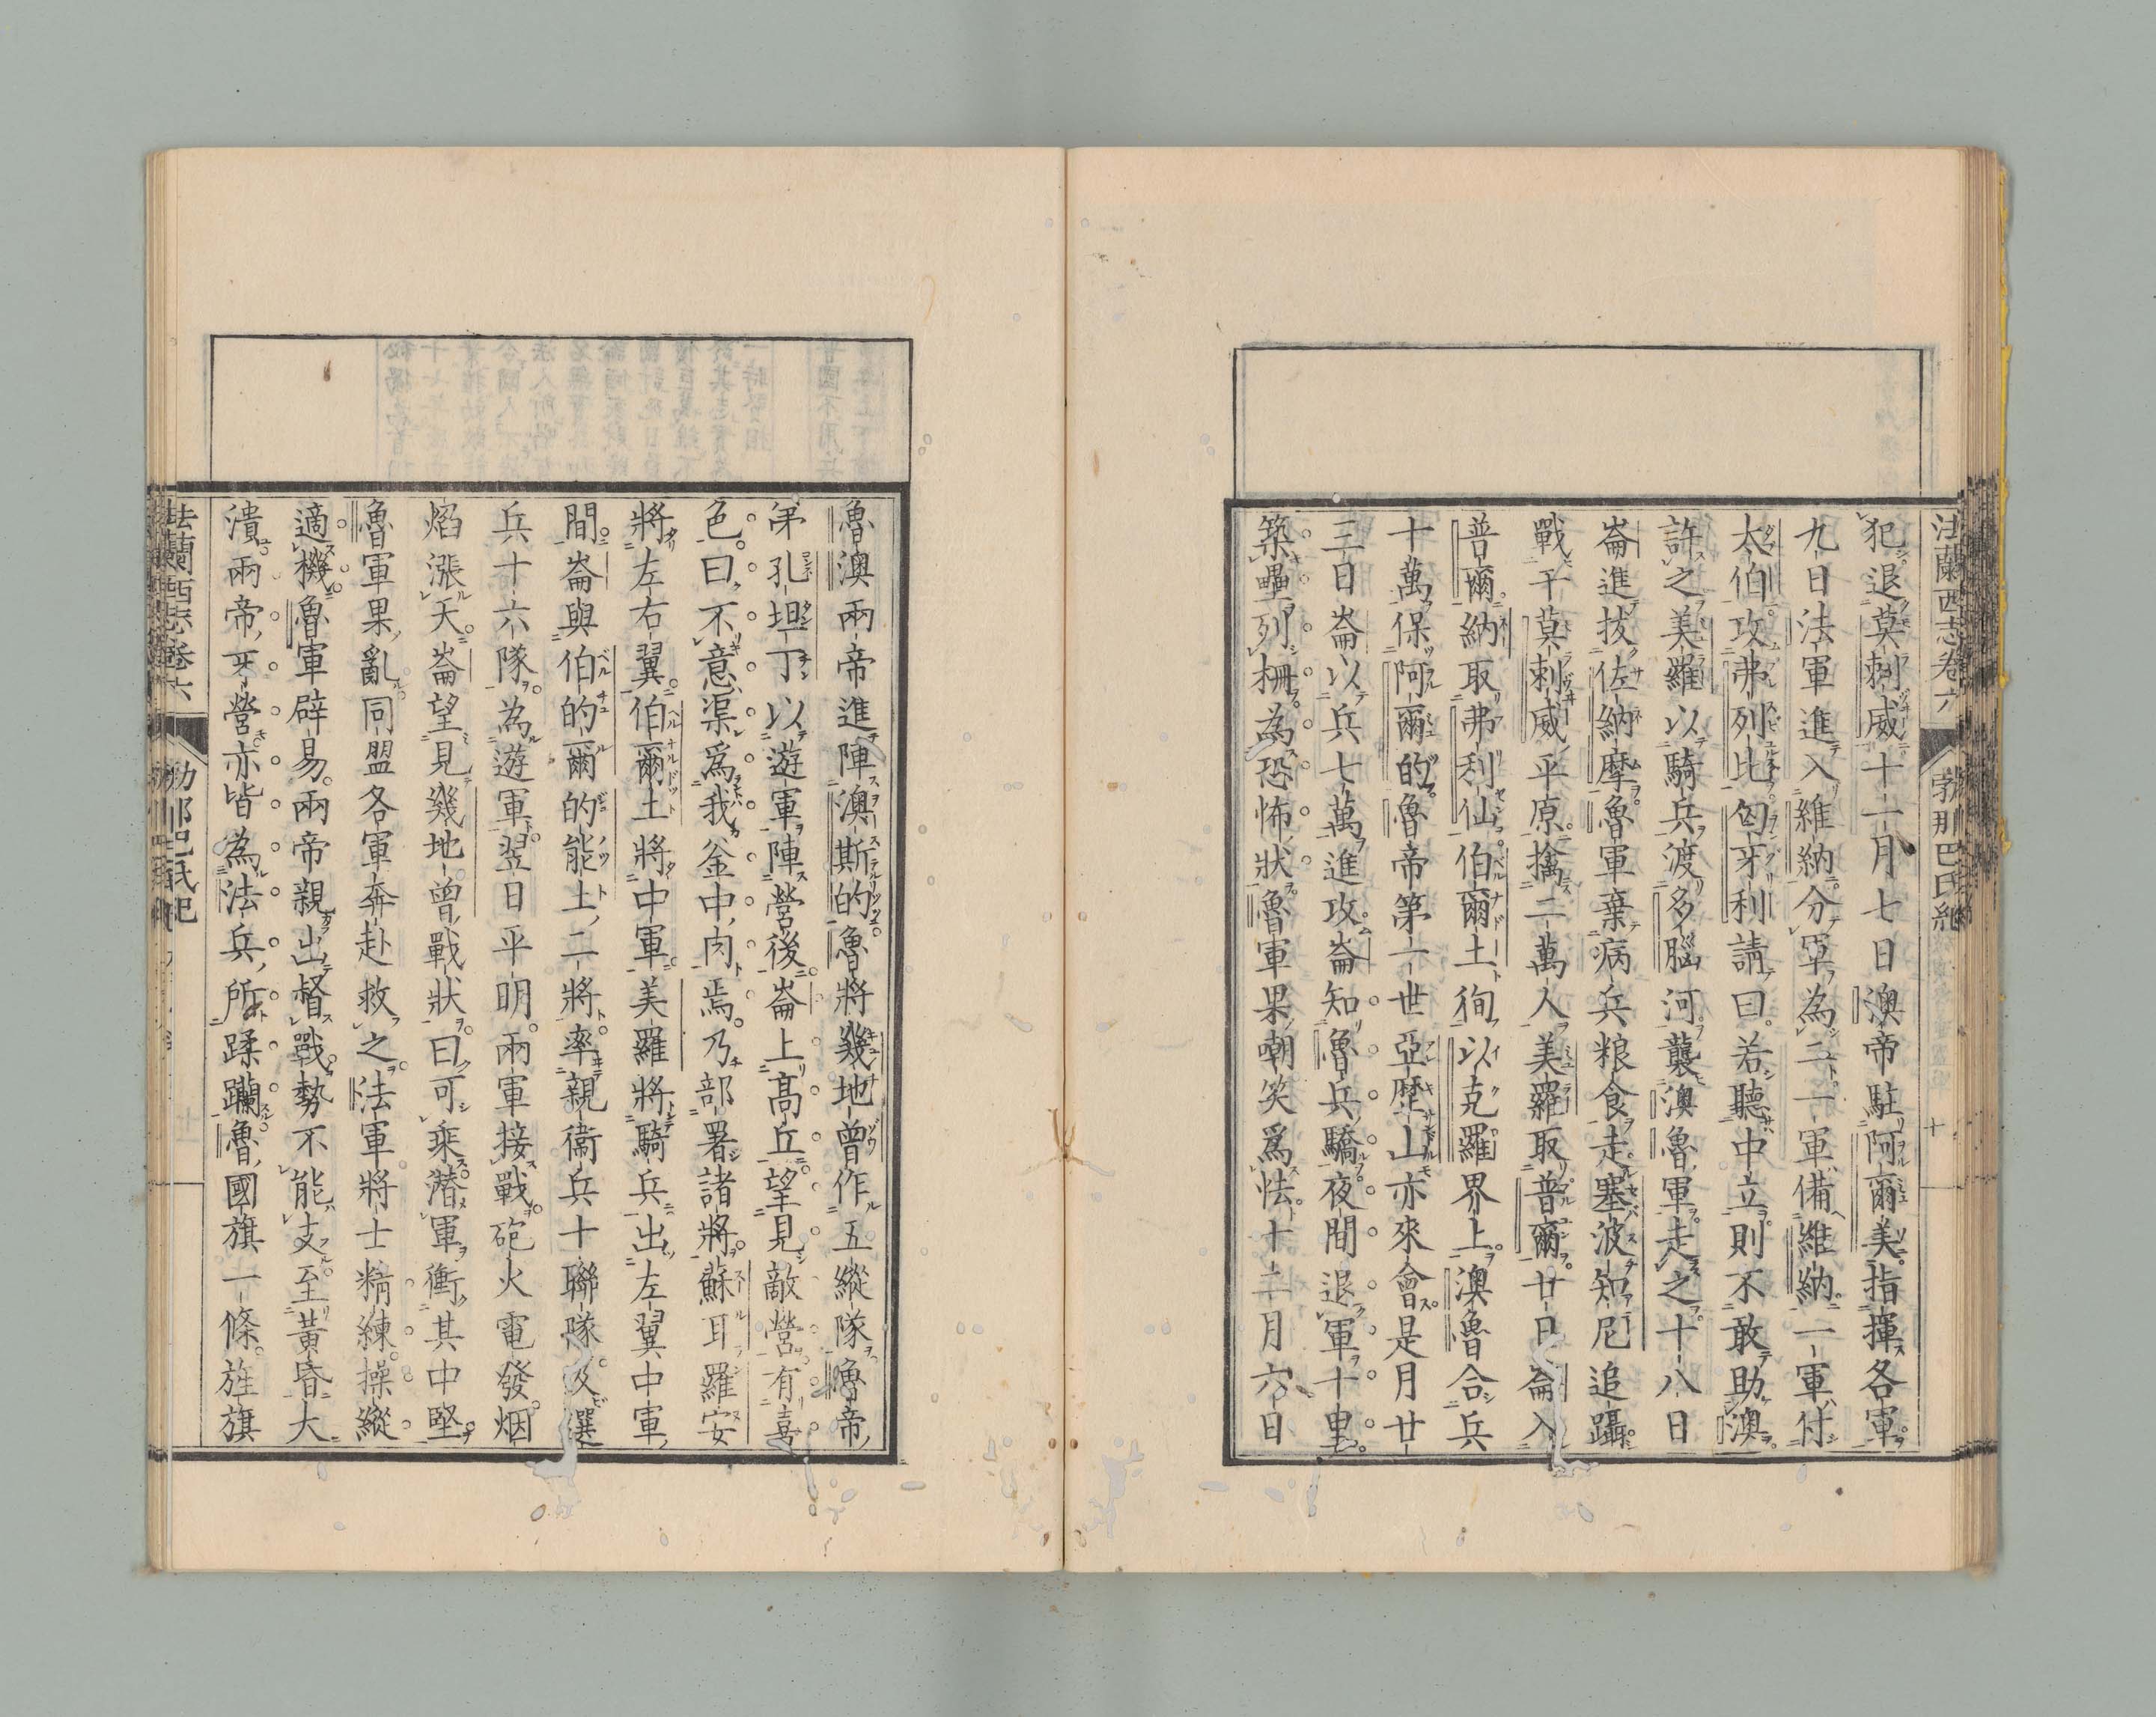 法蘭西志卷六 勃那巴氏紀 十
犯退莫剌威十一月七日澳帝駐阿爾美指揮各軍
九日法軍進入維納分軍為二一軍備維納一軍付
太伯攻弗列比匈牙利請曰若聽中立則不敢助澳
許之美羅以騎兵渡多腦河襲澳魯軍走之十八日
崙進拔佐納摩魯軍棄病兵粮食走塞波知尼追躡
戰于莫剌威平原擒二萬人美羅取普爾廿日崙入
普爾納取弗利仙伯爾土徇以克羅界上澳魯合兵
十萬保阿爾的魯帝第一世亞歷山亦來會是月廿
三日崙以兵七萬進攻崙知魯兵驕夜間退軍十里
築壘列柵為恐怖狀魯軍果嘲笑爲怯十二月六日
魯澳兩帝進陣澳斯的魯將幾地曾作五縱隊魯帝
弟孔坦丁以遊軍陣營後崙上高丘望見敵營有喜
色曰不意渠爲我釜中肉焉乃部署諸將蘇耳羅安
將左右翼伯爾土將中軍美羅將騎兵出左翼中軍
間崙與伯的爾的能土二將率親衞兵十聯隊及選
兵十六隊為遊軍翌日平明兩軍接戰砲火電發烟
焰漲天崙望見幾地曾戰狀曰可乘潛軍衝其中堅
魯軍果亂同盟各軍奔赴救之法軍將士精練操縱
適機魯軍辟易兩帝親出督戰勢不能支至黃昏大
潰兩帝牙營亦皆為法兵所蹂躪魯國旗一條旌旗
法蘭西志卷六 勃那巴氏紀